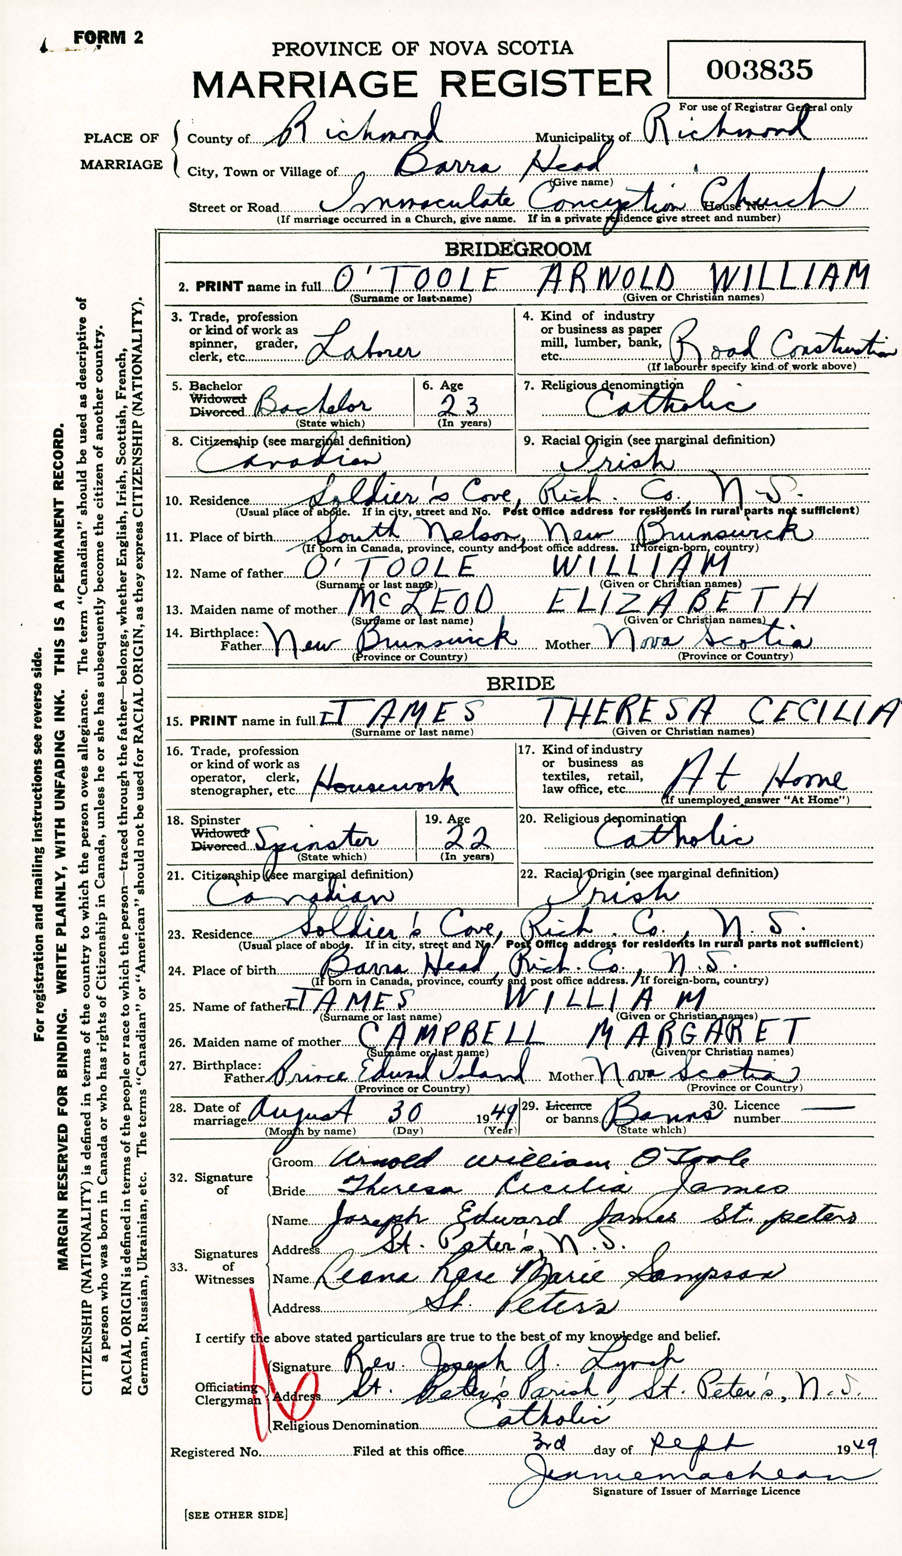 FORM 2
PROVINCE OF NOVA SCOTIA
MARRIAGE REGISTER
003835
For use of Registrar General only
PLACE OF MARRIAGE
County of Richmond Municipality of Richmond
City, Town or Village of Barra Head
(Give name)
Street or Road Immaculate Conception Church House No.
(If marriage occurred in a Church, give name. If in a private residence give street and number)
BRIDEGROOM
2. PRINT name in full O'TOOLE ARNOLD WILLIAM
(Surname or last name) (Given or Christian names)
3. Trade, profession or kind of work as spinner, grader, clerk, etc. Laborer
4. Kind of industry or business as paper mill, lumber, bank, etc. Road Construction
(If labourer specify kind of work above)
5. Bachelor Widowed Divorced Bachelor
(State which)
6. Age 23
(In years)
7. Religious denomination Catholic
8. Citizenship (see marginal definition) Canadian
9. Racial Origin (see marginal definition) Irish
10. Residence Soldier's Cove, Rich. Co., N.S.
(Usual place of abode. If in city, street and No. Post Office address for residents in rural parts not sufficient)
11. Place of birth South Nelson, New Brunswick
(If born in Canada, province, county and post office address. If foreign-born, country)
12. Name of father O'TOOLE WILLIAM
(Surname or last name) (Given or Christian names)
13. Maiden name of mother McLEOD ELIZABETH
(Surname or last name) (Given or Christian names)
14. Birthplace: Father New Brunswick Mother Nova Scotia
(Province or Country) (Province or Country)
BRIDE
15. PRINT name in full JAMES THERESA CECILIA
(Surname or last name) (Given or Christian names)
16. Trade, profession or kind of work as operator, clerk, stenographer, etc. Housework
17. Kind of industry or business as textiles, retail, law office, etc. At Home
(If unemployed answer "At Home")
18. Spinster Widowed Divorced Spinster
(State which)
19. Age 22
(In years)
20. Religious denomination Catholic
21. Citizenship (see marginal definition) Canadian
22. Racial Origin (see marginal definition) Irish
23. Residence Soldier's Cove, Rich. Co., N.S.
(Usual place of abode. If in city, street and No. Post Office address for residents in rural parts not sufficient)
24. Place of birth Barra Head, Rich. Co., N.S.
(If born in Canada, province, county and post office address. If foreign-born, country)
25. Name of father JAMES WILLIAM
(Surname or last name) (Given or Christian names)
26. Maiden name of mother CAMPBELL MARGARET
(Surname or last name) (Given or Christian names)
27. Birthplace: Father Prince Edward Island Mother Nova Scotia
(Province or Country) (Province or Country)
28. Date of marriage August 30 1949
(Month by name) (Day) (Year)
29. Licence or banns Banns
(State which)
30. Licence number —
32. Signature of
Groom Arnold William O'Toole
Bride Theresa Cecilia James
33. Signatures of Witnesses
Name Joseph Edward James St. peters
Address St. Peter's, N.S.
Name Leona Rose Marie Sampson
Address St. Peter's
I certify the above stated particulars are true to the best of my knowledge and belief.
Officiating Clergyman
Signature Rev. Joseph A. Lynch
Address St. Peter's Parish, St. Peter's, N.S.
Religious Denomination Catholic
Registered No. Filed at this office 3rd day of Sept 1949
Signature of Issuer of Marriage Licence
[SEE OTHER SIDE]
For registration and mailing instructions see reverse side.
MARGIN RESERVED FOR BINDING. WRITE PLAINLY, WITH UNFADING INK. THIS IS A PERMANENT RECORD.
CITIZENSHIP (NATIONALITY) is defined in terms of the country to which the person owes allegiance. The term "Canadian" should be used as descriptive of
a person who was born in Canada or who has rights of Citizenship in Canada, unless he or she has subsequently become the citizen of another country.
RACIAL ORIGIN is defined in terms of the people or race to which the person—traced through the father—belongs, whether English, Irish, Scottish, French,
German, Russian, Ukrainian, etc. The terms "Canadian" or "American" should not be used for RACIAL ORIGIN, as they express CITIZENSHIP (NATIONALITY).